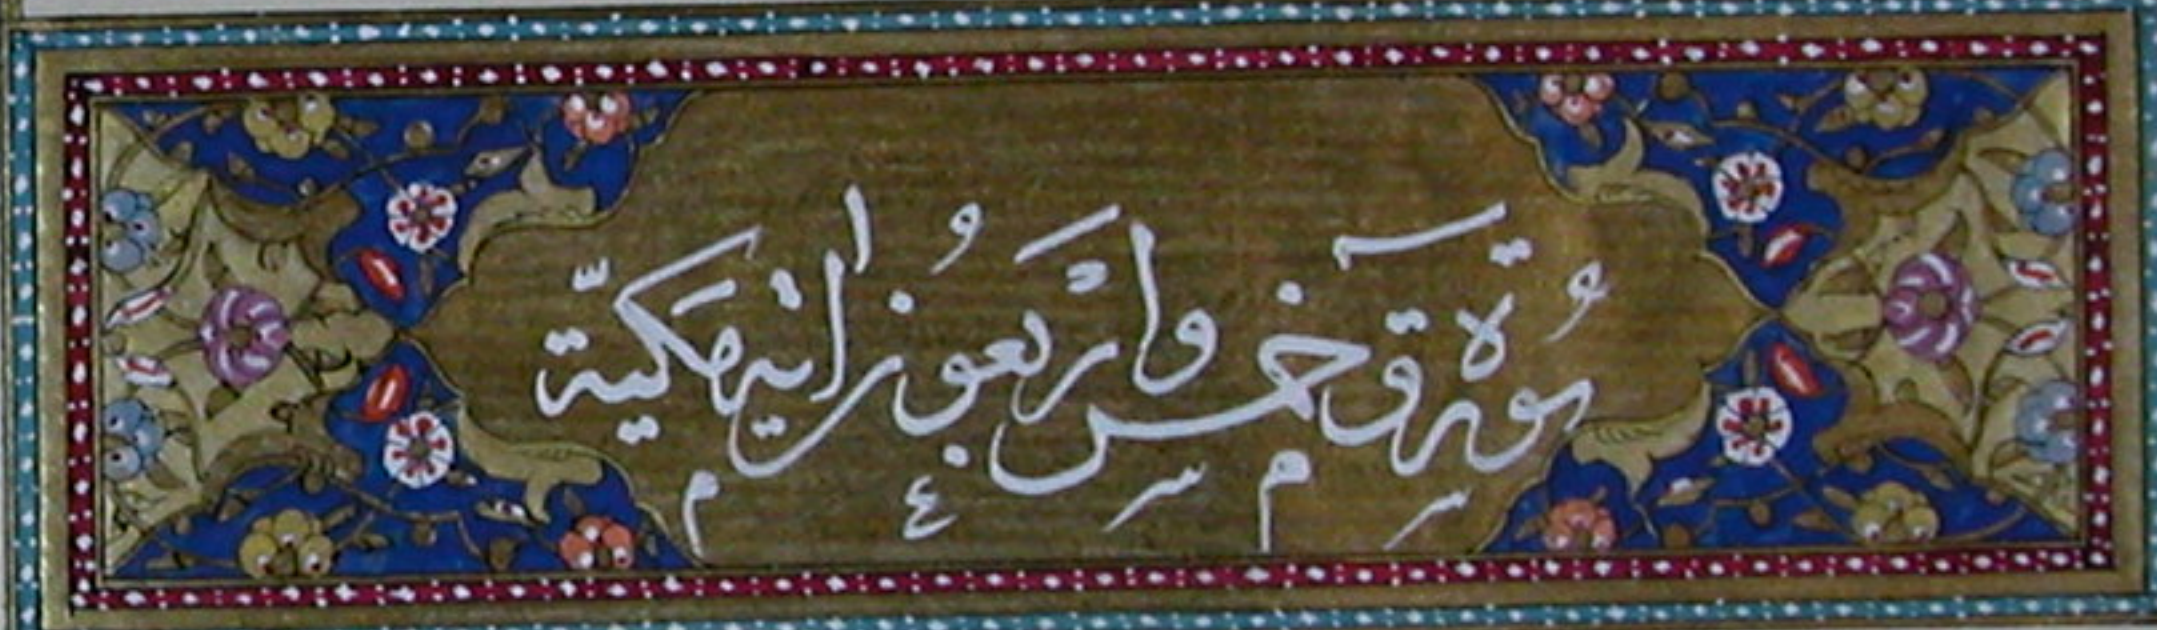 سُورَةُ ق خمس وَاَرْبعُون اٰيه مكيّة